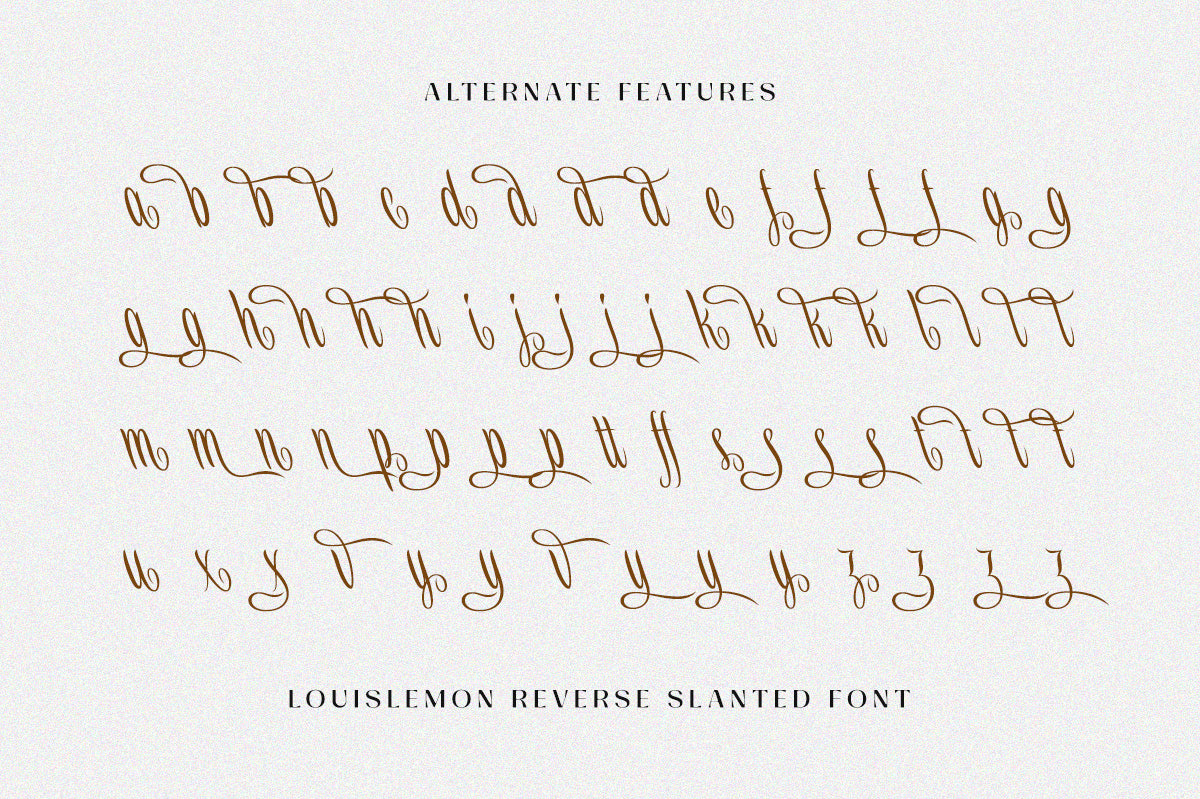 ALTERNATE FEATURES
a b b b c d d d d e f f f f g g
g g h h h h i j j j j k k k k l l l l
m m n n p p p p tt ff s s s s t t t t
u x x v y y v y y y z z z z
LOUISLEMON REVERSE SLANTED FONT